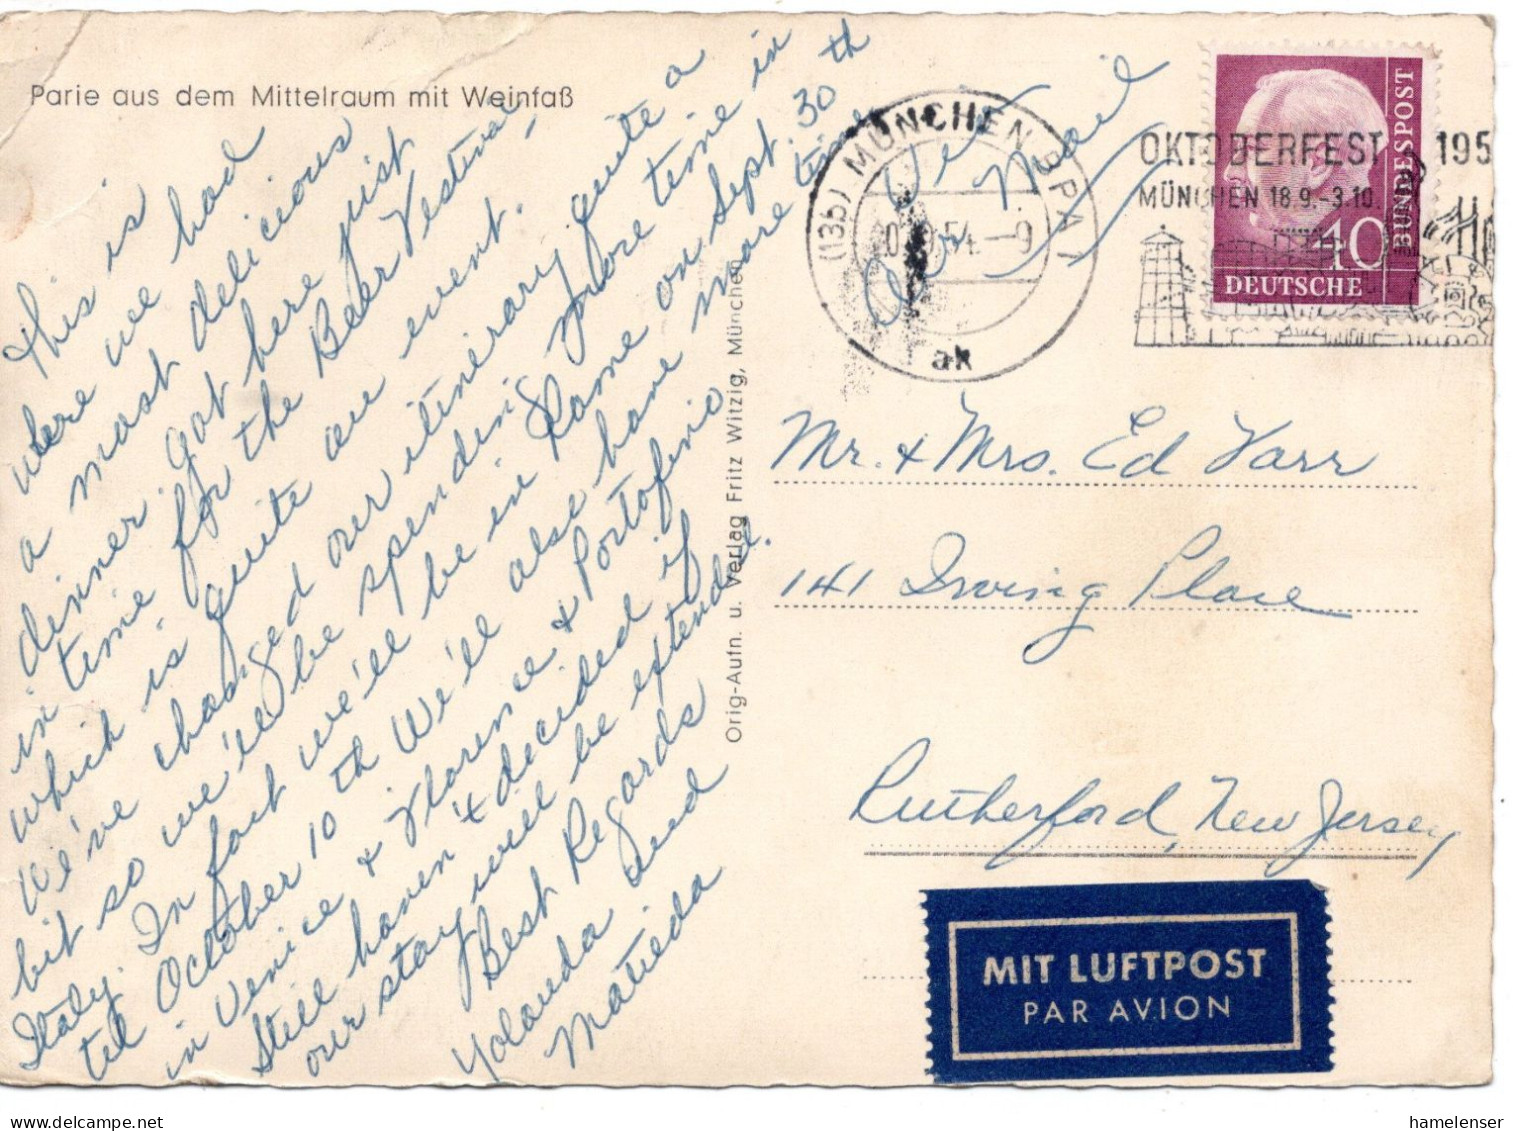 Parie aus dem Mittelraum mit Weinfaß
This is
where we had
a most delicious
dinner. Got here just
in time for the Beer Festival,
which is quite an event.
We've changed our itinerary quite a
bit so we'll be spending more time in
Italy. In fact we'll be in Rome on Sept. 30th
til October 10th We'll also have more time
in Venice & Florence & Portofino
Still haven't decided if
our stay will be extended.
Best Regards
Yolanda and
Matilda
Orig-Aufn. u. Verlag Fritz Witzig, München
(13b) MÜNCHEN BPA 1
9.54 - 9
ak
Via
Air Mail
OKTOBERFEST 195
MÜNCHEN 18.9.-3.10.
BUNDESPOST
40
DEUTSCHE
Mr. & Mrs. Ed Varr
141 Irving Place
Rutherford, New Jersey
MIT LUFTPOST
PAR AVION
hamelenser